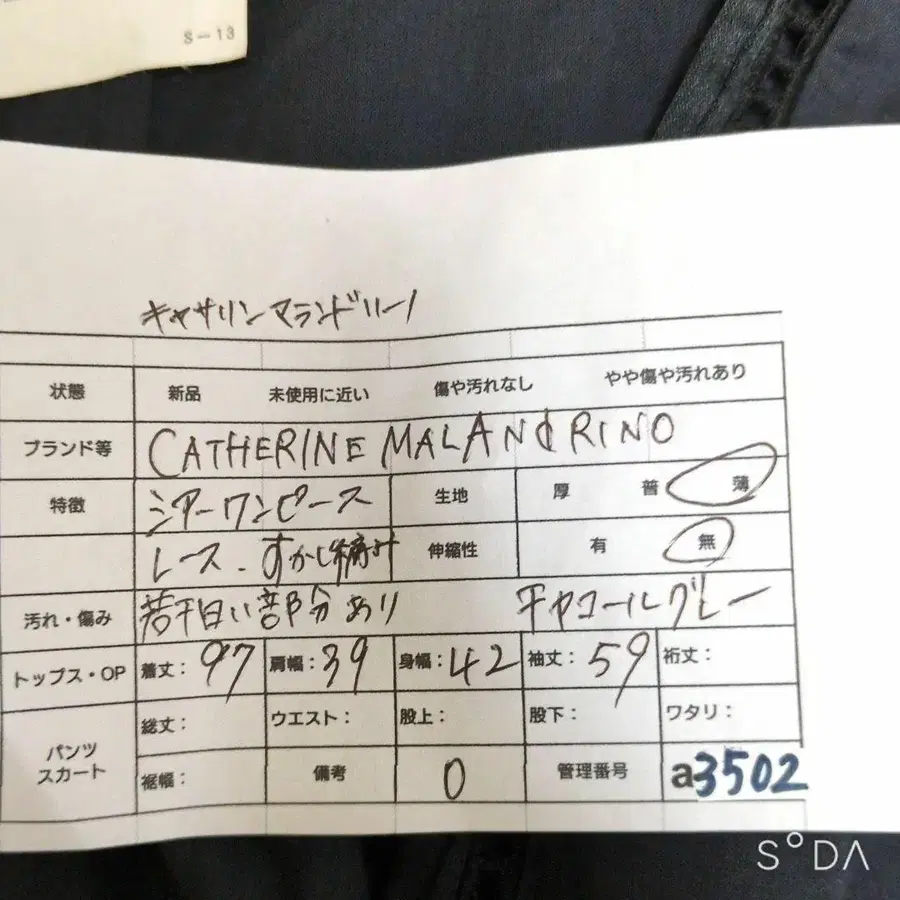 S-13
キャサリンマランドリーノ
状態 新品 未使用に近い 傷や汚れなし やや傷や汚れあり
ブランド等 CATHERINE MALANDRINO
特徴 シアーワンピース 生地 厚 普 薄
レース、すかし 伸縮性 有 無
汚れ・傷み 若干白い部分あり チャコールグレー
トップス・OP 着丈: 97 肩幅: 39 身幅: 42 袖丈: 59 裄丈:
パンツ スカート 総丈: ウエスト: 股上: 股下: ワタリ:
裾幅: 備考 0 管理番号 a3502
SODA